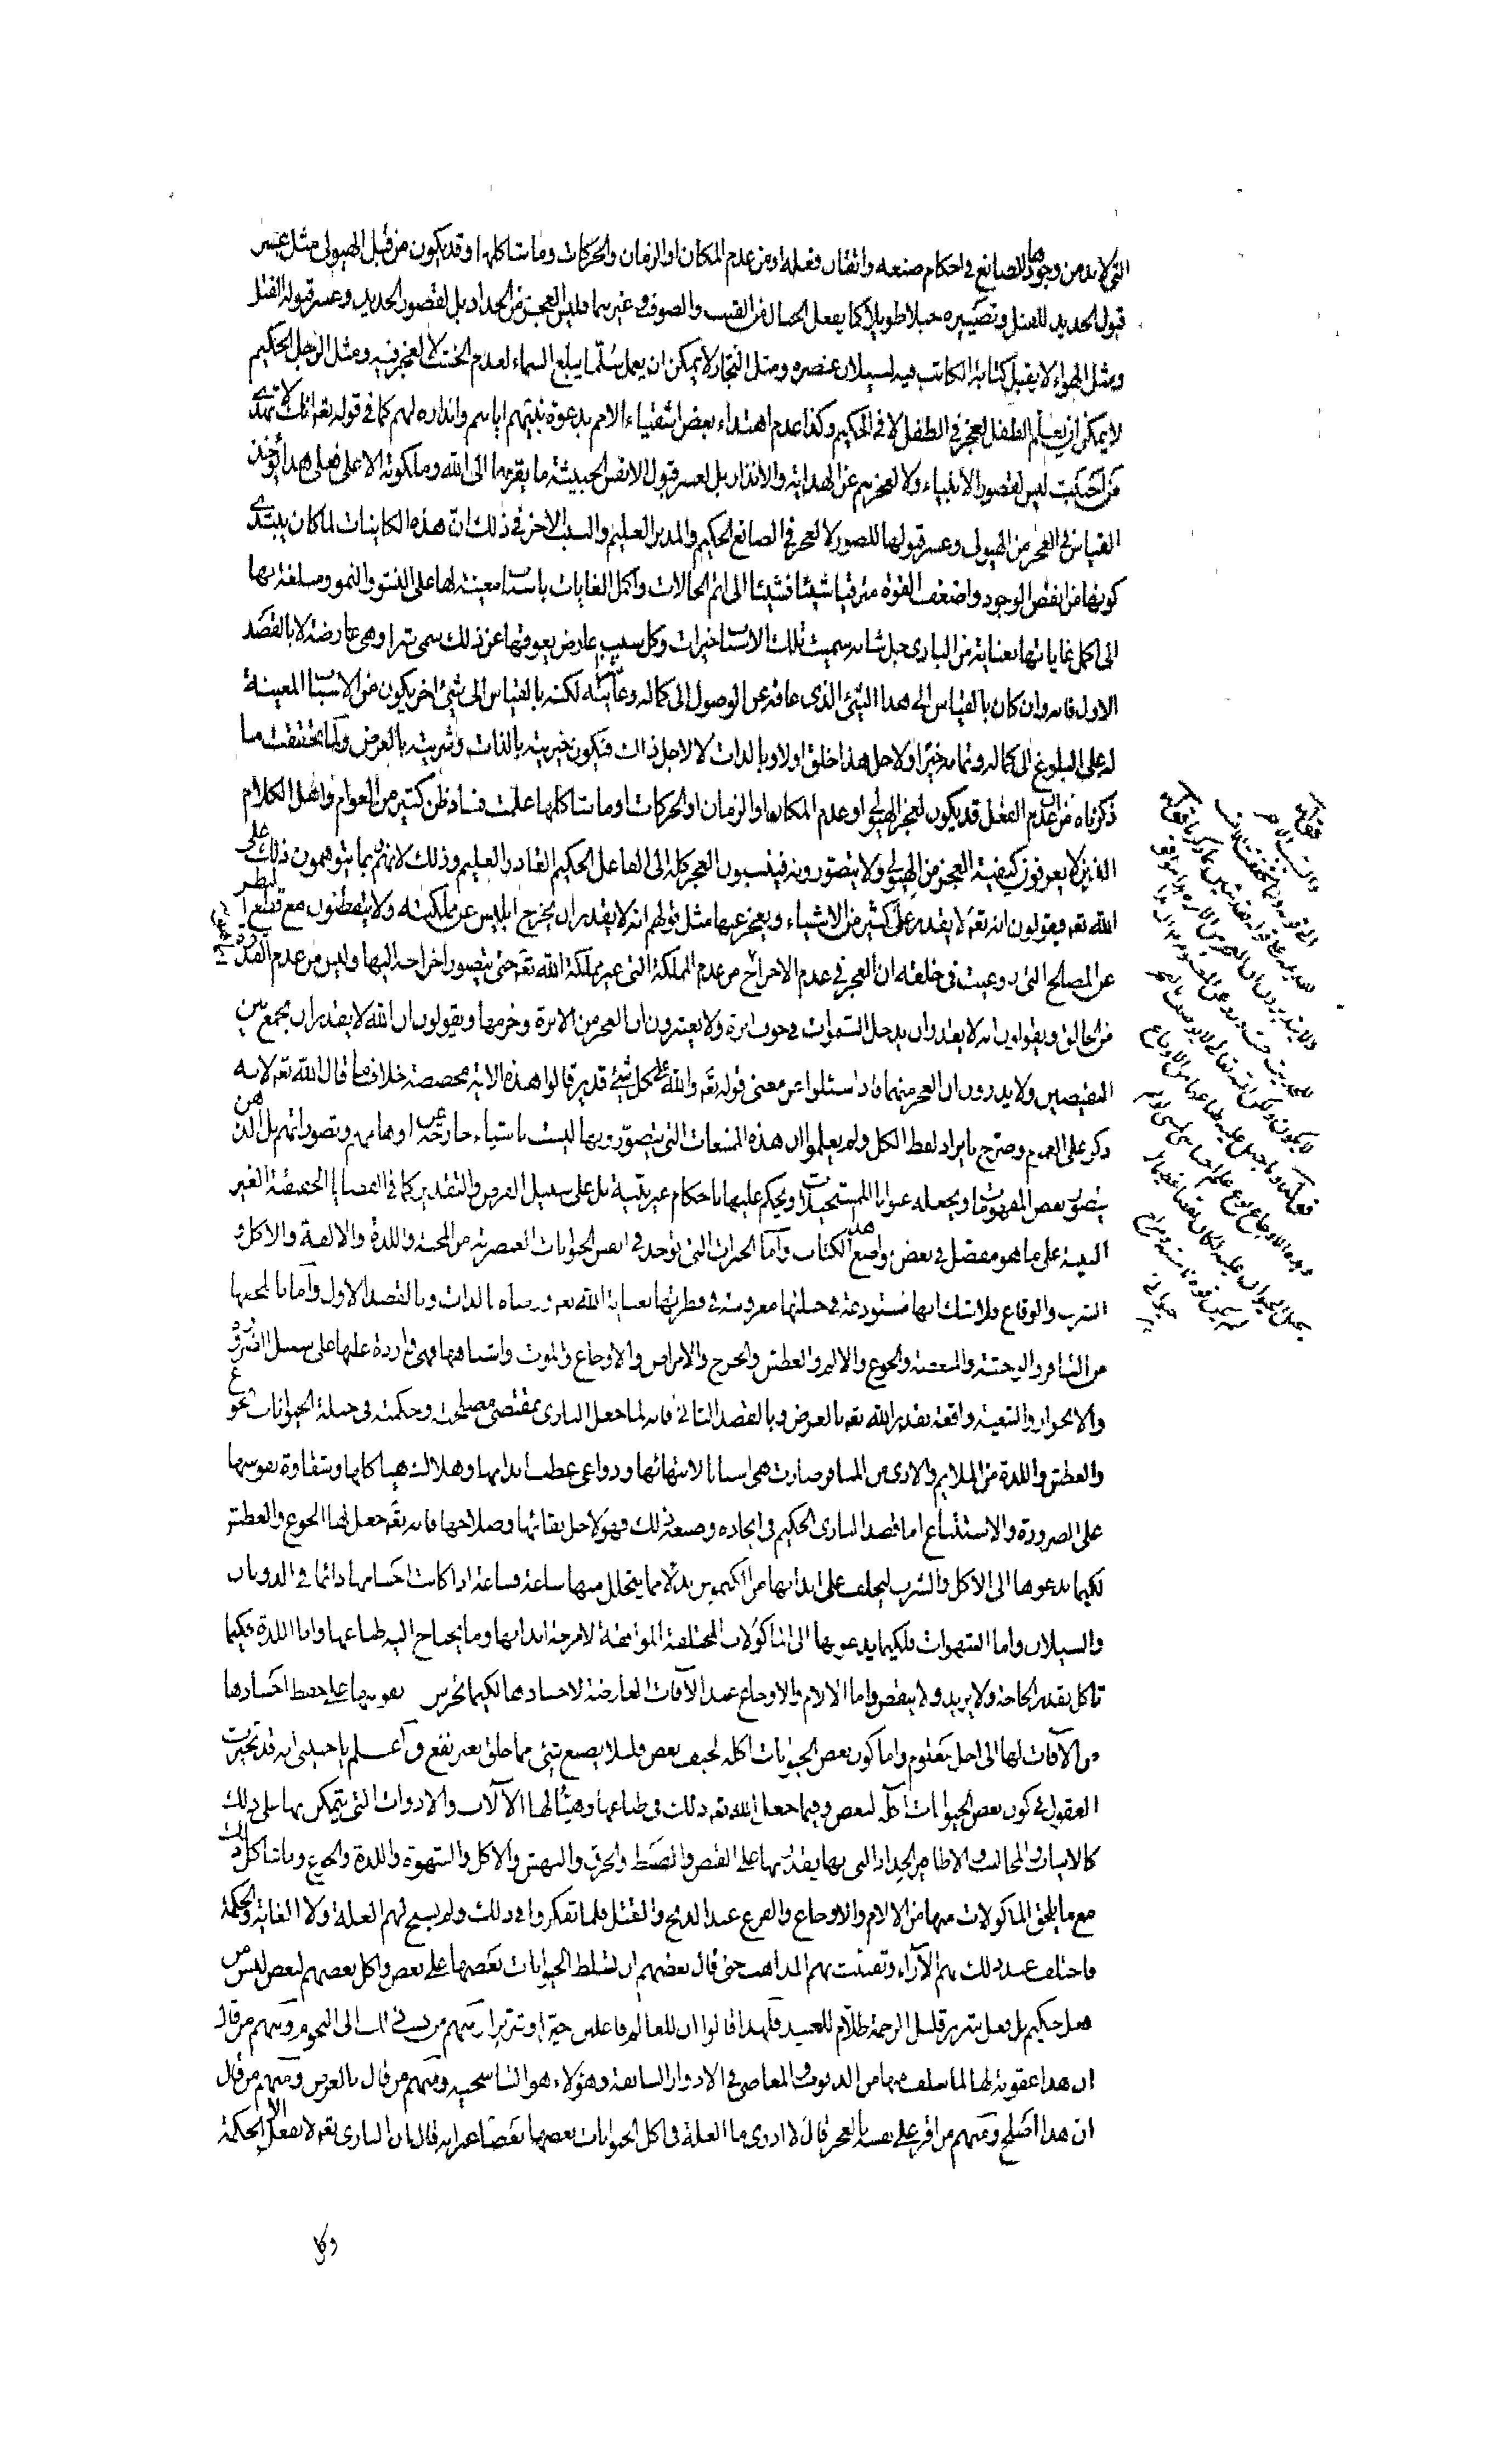 التي لا بد من وجودها للصانع في احكام صنعه واتقان فعله او من عدم المكان او الزمان والحركات وما شاكلها وقد يكون من قبل الهيولى مثل عسر
قبول الحديد للفتل وتصييره حبلا طويلا كما يفعل الحبال من القنب والصوف وغيرهما فليس العجز من الحداد بل لقصور الحديد وعسر قبوله الفتل
ومثل الهواء لا يقبل كتابة الكاتب فيه لسيلان عنصره ومثل النجار لا يمكن ان يعمل سلما يبلغ السماء لعدم الخشب لا لعجز فيه ومثل الرجل الحكيم
لا يمكن ان يعلم الطفل لعجز في الطفل لا في الحكيم وكذا عدم اهتداء بعض اشقياء الامم بدعوة نبيهم اياهم وانذاره لهم كما في قوله تعه انك لا تهدى
من احببت ليس لقصور الانبياء ولا لعجزهم عن الهداية والانذار بل لعسر قبول الانفس الخبيثة ما يقربها الى الله وملكوته الاعلى فعلى هذا يؤخذ
القياس في العجز من الهيولى وعسر قبولها للصور لا العجز في الصانع الحكيم والمدبر العليم والسبب الاخر في ذلك ان هذه الكاينات لما كان يبتدى
كونها من انقص الوجود واضعف القوة مترقيا شيئا فشيئا الى اتم الحالات واكمل الغايات باسباب معينة لها على النشو والنمو ومبلغة بها
الى اكمل غاياتها بعناية من البارى جل شانه سميت تلك الاسباب خيرات وكل سبب عارض يعوقها عن ذلك سمى شرا وهى عارضة لا بالقصد
الاول فانه وان كان بالقياس الى هذا الشئ الذى عاقه عن الوصول الى كماله وغايته لكنه بالقياس الى شئ اخر يكون من الاسباب المعينة
له على البلوغ الى كماله وتمامه خيرا ولاجل هذا خلق اولا وبالذات لا لاجل ذاك فيكون خيريته بالذات وشريته بالعرض ولما تحققت ما
ذكرناه من ان عدم الفعل قد يكون لعجز الهيولى او عدم المكان او الزمان او الحركات وما شاكلها علمت فساد ظن كثير من العوام واهل الكلام
الذين لا يعرفون كيفية العجز من الهيولى ولا يتصورونه فينسبون العجز كله الى الفاعل الحكيم القادر العليم وذلك لانهم ربما يتوهمون ذلك على
الله تعه فيقولون انه تعه لا يقدر على كثير من الاشياء ويعجز عنها مثل قولهم انه لا يقدر ان يخرج ابليس عن مملكته ولا يتفطنون مع قطع النظر
عن المصالح التى روعيت في خلقته ان العجز في عدم الاخراج من عدم المملكة التى غير مملكة الله تعه حتى يتصور اخراجه اليها وليس من عدم القدرة
من الخالق ويقولون انه لا يقدر ان يدخل السموات في جوف ابرة ولا يعتبرون ان العجز من الابرة وخرمها ويقولون ان الله لا يقدر ان يجمع بين
النقيضين ولا يدرون ان العجز منهما فاذا سئلوا عن معنى قوله تعه والله على كل شئ قدير قالوا هذه الاية مخصصة خلاف ما قال الله تعه لانه
ذكر على العموم وصرح بايراد لفظ الكل ولم يعلموا ان هذه الممتنعات التى يتصورونها ليست باشياء خارجة عن اوهامهم وتصوراتهم بل الذهن
يتصور بعض المفهومات ويجعله عنوانا للمستحيلات ويحكم عليها باحكام غير بتية بل على سبيل الفرض والتقدير كما في القضايا الحقيقية الغير
البتية على ما هو مفصل في بعض مواضع هذا الكتاب واما الخيرات التى توجد في انفس الحيوانات العنصرية من المحبة واللذة والالفة والاكل و
الشرب والوقاع فلا شك انها مستودعة في جبلتها مغروسة في فطرتها بعناية الله تعه ورضاه بالذات وبالقصد الاول واما ما يلحقها
من التنافر والوحشة والمعصية والجوع والالم والعطش والجرح والامراض والاوجاع والموت واشباهها فهى واردة عليها على سبيل الضرورة
والانجرار والتبعية واقعة بقدر الله تعه بالعرض وبالقصد الثانى فانه لما جعل البارى بمقتضى مصلحته وحكمته في جبلة الحيوانات الجوع
والعطش واللذة من الملايم والاذى من المنافر صارت هى اسبابا لانتهائها ودواعى عطب ابدانها وهلاك هياكلها وشقاوة نفوسها
على الضرورة والاستتباع اما قصد البارى الحكيم في ايجاده وصنعه ذلك فهو لاجل بقائها وصلاحها فانه تعه جعل لها الجوع والعطش
لكيما يدعوها الى الاكل والشرب ليخلف على ابدانها من الكيموس بدلا مما يتحلل منها ساعة فساعة اذا كانت اجسامها دائما في الذوبان
والسيلان واما الشهوات فلكيما يدعوها الى الماكولات المختلفة الموافقة لامزجة ابدانها وما يحتاج اليه طباعها واما اللذة فلكيما
تاكل بقدر الحاجة ولا يزيد ولا ينقص واما الالام والاوجاع عند الآفات العارضة لاجسادها لكيما تحرص نفوسها على حفظ اجسادها
من الآفات لها الى اجل معلوم واما كون بعض الحيوانات اكلة لجيف بعض فلئلا يضيع شئ مما خلق بغير نفع واعلم يا حبيبى انه قد تحيرت
العقول في كون بعض الحيوانات آكلا لبعض وفيما جعل الله تعه ذلك في طباعها وهيأ لها الآلات والادوات التى يتمكن بها على ذلك
كالانياب والمخالب والاظافير الحداد التى بها يقدر بها على القبض والضبط والخرق والنهش والاكل والشهوة واللذة والجوع وما شاكل ذلك
مع ما يلحق الماكولات منها من الالام والاوجاع والفزع عند الذبح والقتل فلما تفكروا في ذلك ولم يسنح لهم العلة ولا الغاية والحكمة
فاختلف عند ذلك بهم الآراء وتفننت بهم المذاهب حتى قال بعضهم ان تسلط الحيوانات بعضها على بعض واكل بعضهم لبعض ليس من
فعل حكيم بل فعل شرير قليل الرحمة ظلام للعبيد فلهذا قالوا ان للعالم فاعلين خيرا وشريرا ومنهم من نسب ذلك الى النجوم ومنهم من قال
ان هذا عقوبة لها لما سلف منها من الذنوب والمعاصى في الادوار السابقة وهؤلاء هم التناسخية ومنهم من قال بالعرض ومنهم من قال
ان هذا اصلح ومنهم من اقر على نفسه بالعجز قال لا ادرى ما العلة في اكل الحيوانات بعضها بعضا غير انه قال ان البارى تعه لا يفعل الا لحكمة
وكل